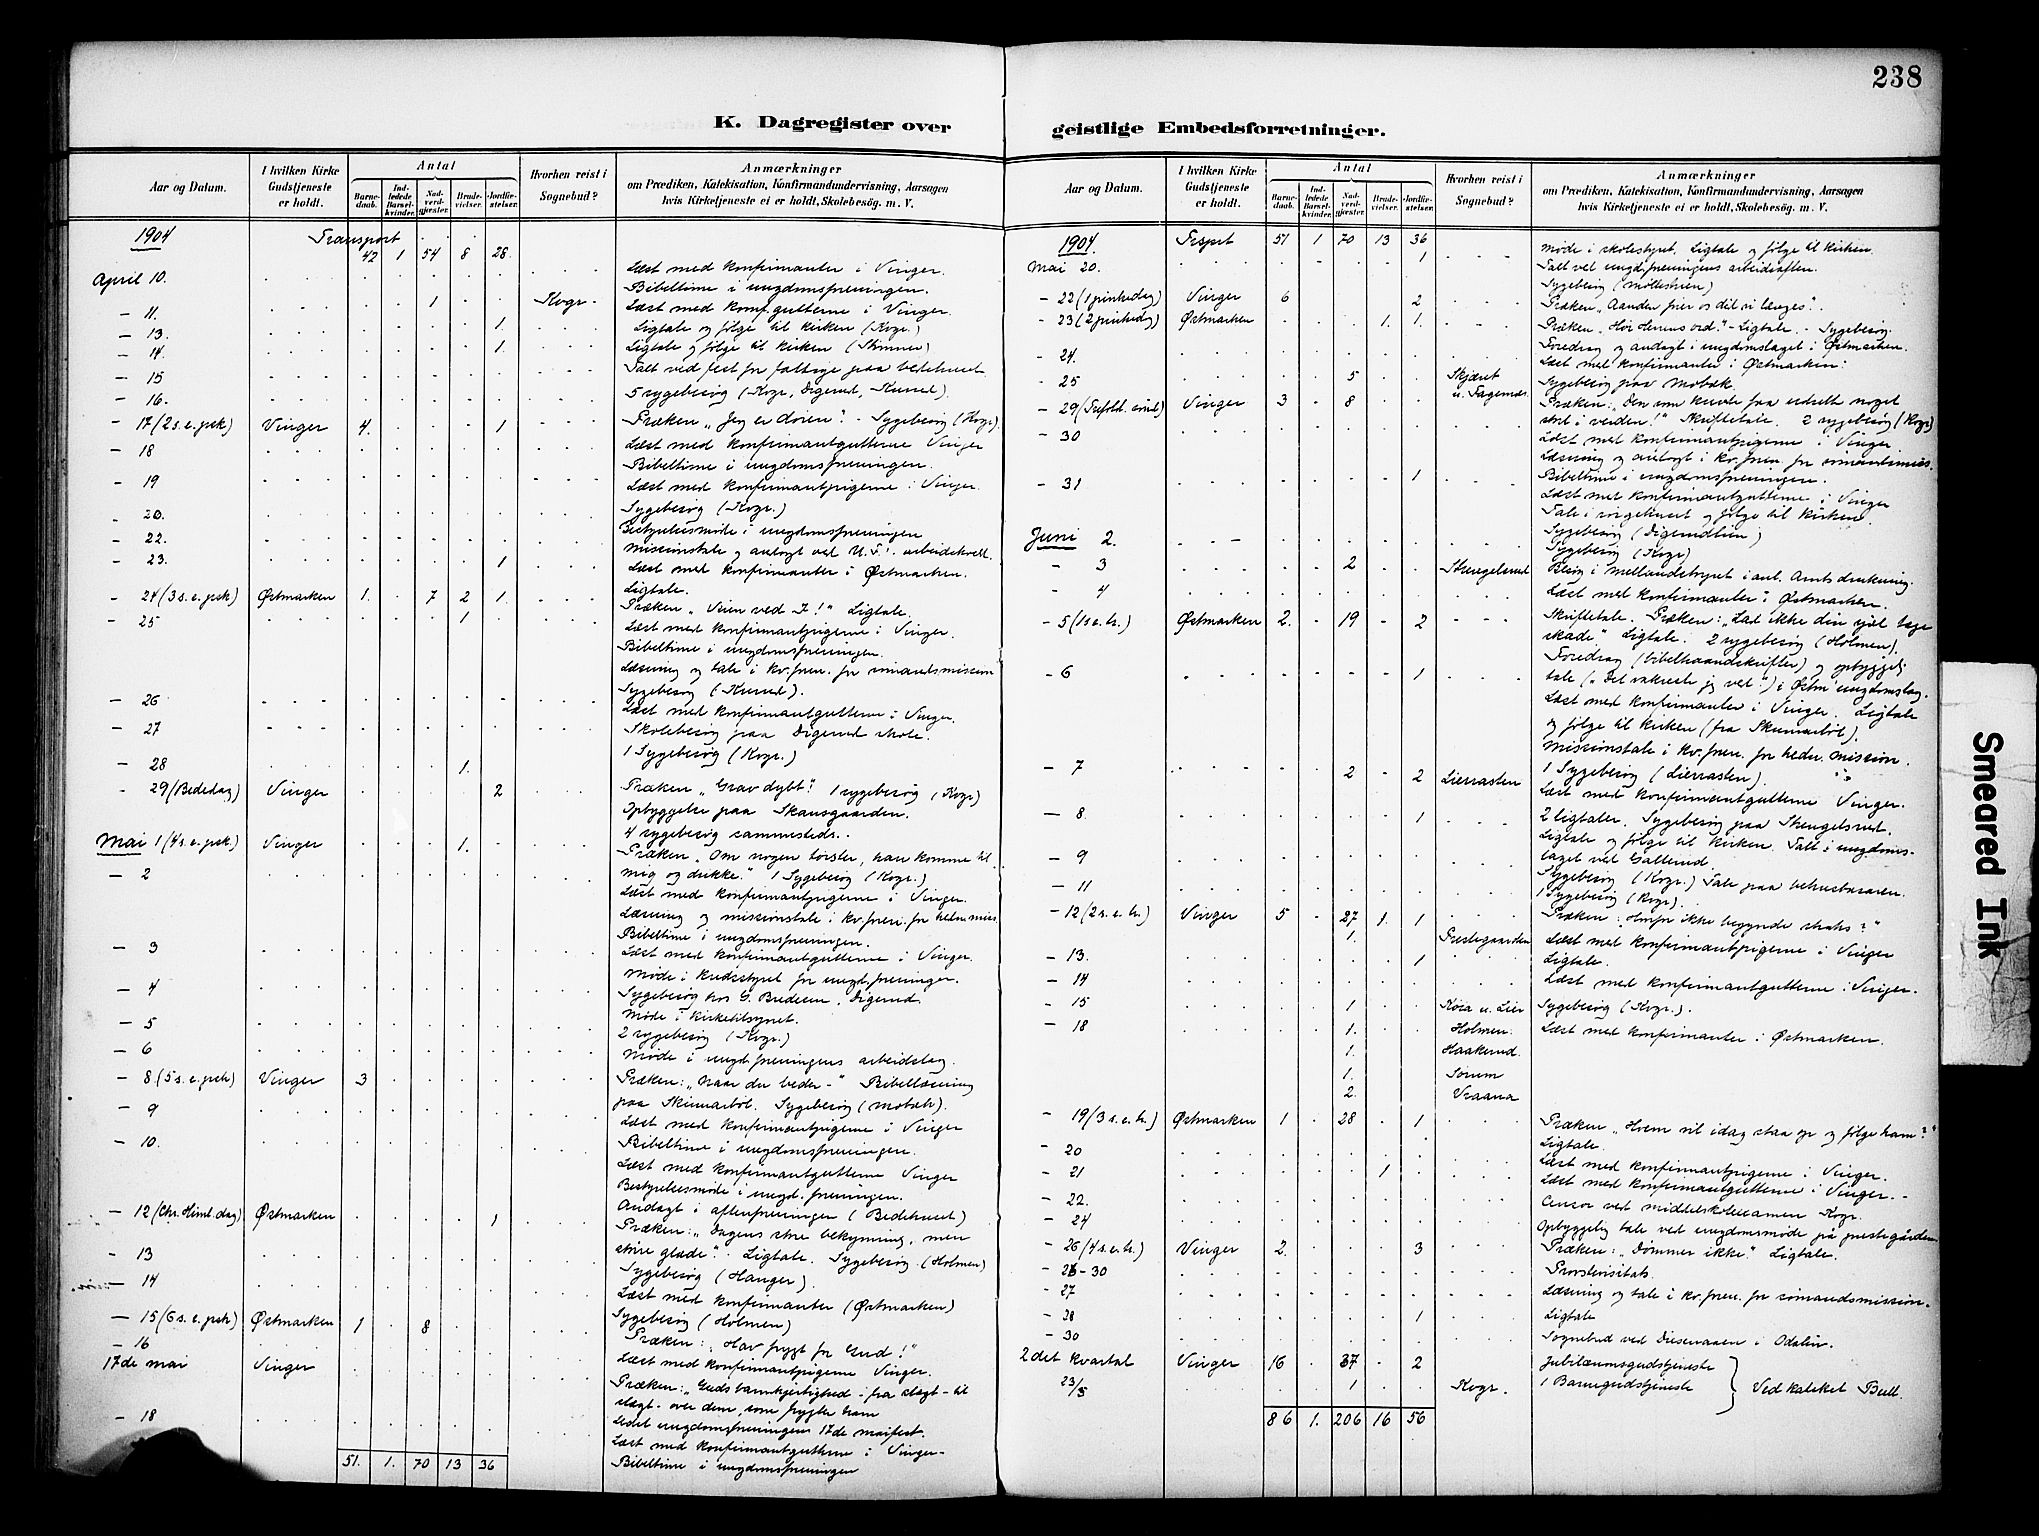 238
K. Dagregister over
geistlige Embedsforretninger.
Aar og Datum.
I hvilken Kirke Gudstjeneste er holdt.
Antal
Barnedaab.
Indledede Barselkvinder.
Nadverdgjester.
Brudevielser.
Jordfæstelser.
Hvorhen reist i Sognebud?
Anmærkninger
om Prædiken, Katekisation, Konfirmandundervisning, Aarsagen
hvis Kirketjeneste ei er holdt, Skolebesøg. m. V.
1904 Transport 42 1 54 8 28.
April 10. Læst med konfirmanter i Vinger.
Bibeltime i ungdomsforeningen.
- 11. 1 Kvgr. Læst med konf.gutterne i Vinger.
- 13. 1. Ligtale og følge til kirken (Kvgr.)
- 14. 1. Ligtale og følge til kirken
- 15 Talt ved fest for fattige paa bedehuset
- 16. 5 sygebesøg (Kvgr., Digerud,
- 17 (2 s. e. psk) Vinger 4. 1 Præken „Jeg er døren". - Sygebesøg (Kvgr)
- 18 Læst med konfirmantgutterne Vinger
Bibeltime i ungdomsforeningen.
- 19 Læst med konfirmantpigerne i Vinger.
- 20. Sygebesøg (Kvgr.)
- 22. Bestyrelsesmøde i ungdomsforeningen
- 23. 1 Missionstale og andagt ved U.F. arbeidskvell.
Læst med konfirmanter i Østmarken.
Ligtale.
- 24 (3 s. e. psk) Østmarken 1. 7 2 1. Præken „Veien ved J!" Ligtale.
- 25 1 Læst med konfirmantpigerne i Vinger.
Bibeltime i ungdomsforeningen.
Læsning og tale i kv.foren. for sømandsmission
- 26 Sygebesøg
Læst med konfirmantgutterne i Vinger.
- 27 Skolebesøg paa Digerud skole.
- 28 1. 1 Sygebesøg (Kvgr.)
- 29 (Bededag) Vinger 2 Præken „Grav dybt!" 1 sygebesøg (Kvgr)
Opbyggelse paa Skansgaarden.
4 sygebesøg sammesteds.
Mai 1 (4 s. e. psk.) Vinger 1. Præken „Om nogen tørster, han komme til
- 2 mig og drikke." 1 Sygebesøg (Kvgr.)
Læst med konfirmantpigerne i Vinger.
Læsning og missionstale i kv.foren. for
Bibeltime i ungdomsforeningen.
- 3 Læst med konfirmantgutterne i Vinger.
Møde i kredsstyret for ungd.foreninger.
- 4 Sygebesøg hos G. Bredesen, Digerud.
- 5 Møde i kirketilsynet.
2 sygebesøg (Kvgr.)
- 6 Møde i ungd.foreningens arbeidslag.
- 8 (5 s. e. psk) Vinger 3 Præken: „Naar du beder -" Bibellæsning
- 9 paa Skinnarbøl. Sygebesøg
Læst med konfirmantpigerne i Vinger
- 10. Bibeltime i ungdomsforeningen.
Læst med konfirmantgutterne Vinger
Bestyrelsesmøde i ungd.foreningen.
- 12 (Chr. Himl. dag) Østmarken 1 Andagt i aftenforeninger (Bedehuset)
Præken: „Dagens store bekymring, men
- 13 store glæde". Ligtale. Sygebesøg (Holmen)
- 14 Sygebesøg (Hanger).
Læst med konfirmanter (Østmarken)
- 15 (6 s. e. psk) Østmarken 1 8 Sygebesøg (Holmen)
- 16 Præken: „Hav frygt for Gud!"
17de mai Vinger Læst med konfirmantpigerne Vinger.
Præken: „Guds barmhjertighed - fra slægt - til
slægt - over dem, som frygter ham
- 18 Ledet ungdomsforeningens 17de maifest.
Læst med konfirmantgutterne i Vinger -
51. 1. 70 13 36 Bibeltime i ungdomsforeningen
Aar og Datum.
I hvilken Kirke Gudstjeneste er holdt.
Antal
Barnedaab.
Indledede Barselkvinder.
Nadverdgjester.
Brudevielser.
Jordfæstelser.
Hvorhen reist i Sognebud?
Anmærkninger
om Prædiken, Katekisation, Konfirmandundervisning, Aarsagen
hvis Kirketjeneste ei er holdt, Skolebesøg. m. V.
1904. Trsprt 51 1 70 13 36 Møde i skolestyret. Ligtale og følge til kirken.
Mai 20. 1 Talt ved ungd.foreningens arbeidsaften.
Sygebesøg
- 22 (1 pinkedag) Vinger 6 2 Præken „Aanden hvor
- 23 (2 pinkedag) Østmarken 1. 1. Præken „Hør Herrens ord." - Ligtale. - Sygebesøg.
- 24. Foredrag og andagt i ungdomslaget i Østmarken.
Læst med konfirmanter i Østmarken.
- 25 5 Skjæret u. Fagernes Sygebesøg paa
- 29 (Trefold. sønd) Vinger 3 8 Præken: „Den som kunde faa udrettet noget
stort i verden!" Skriftetale. 2 sygebesøg (Kvgr)
- 30 Læst med konfirmantpigerne i Vinger
Læsning og andagt i kv.foren. for sømandsmis.
Bibeltime i ungdomsforeningen.
- 31 1 Læst med konfirmantgutterne i Vinger
Tale i sørgehuset og følge til kirken.
Juni 2. Sygebesøg (Digerudlien)
Sygebesøg (Kvgr)
- 3 2 Stengelsrud Besøg i
- 4 Læst med konfirmanter i Østmarken.
- 5 (1 s e. tr.) Østmarken 2. 19 2 Skriftetale. Præken: „Lad ikke din sjæl tage
skade" Ligtale. 2 sygebesøg (Holmen).
- 6 1 Foredrag (bibelhaandskrifter) og opbyggelig
tale („Det vakreste jeg ved") i Østm. ungdomslag.
Læst med konfirmanter i Vinger. Ligtale
og følge til kirken (fra Skinnarbøl).
Missionstale i kv.foren. for hedn. mission.
- 7 2 2 Lierrasten 1 Sygebesøg (Lierrasten).
Læst med konfirmantgutterne Vinger.
- 8. 1 2 ligtaler. Sygebesøg paa Stengelsrud.
Ligtale og følge til kirken. Talt i ungdoms-
- 9 laget ved Gallerud.
Sygebesøg (Kvgr.) Tale paa
- 11 1 Sygebesøg (Kvgr).
- 12 (2 s. e. tr.) Vinger 5 27 1. 1 Præken: Hvorfor ikke begynde straks?"
1. Prestegaarden
- 13. 1 Læst med konfirmantpigerne i Vinger
Ligtale.
- 14 Læst med konfirmantgutterne i Vinger.
- 15 1 Kosa u. Lier Sygebesøg (Kvgr.).
- 18 1. Holmen. Læst med konfirmanter i Østmarken.
1. Haakerud.
1. Sørum
2. Vraana
- 19 (3 s. e. tr.) Østmarken 1 28 1 Præken „Hvem vil idag staa op og følge ham?"
- 20 Ligtale.
- 21 1 Læst med konfirmantpigerne i Vinger.
Læst med konfirmantgutterne i Vinger. -
- 22. Censor ved middelskoleexamen Kvgr.
- 24 Opbyggelig tale ved ungdomsmøde på prestegården
- 26 (4 s. e. tr.) Vinger 2. 3 Præken: „Dømmer ikke." Ligtale.
- 26 - 30 Provstevisitats.
- 27 Læsning og tale i kv.foren. for sømandsmission.
- 28 1 Ligtale
- 30 Sognebud ved i Odalen.
2det kvartal Vinger 16 37 2 Jubilæumsgudstjeneste
23/5 1 Kvgr. 1 Barnegudstjeneste } Ved kateket Bull.
86 1. 206 16 56
Smeared Ink